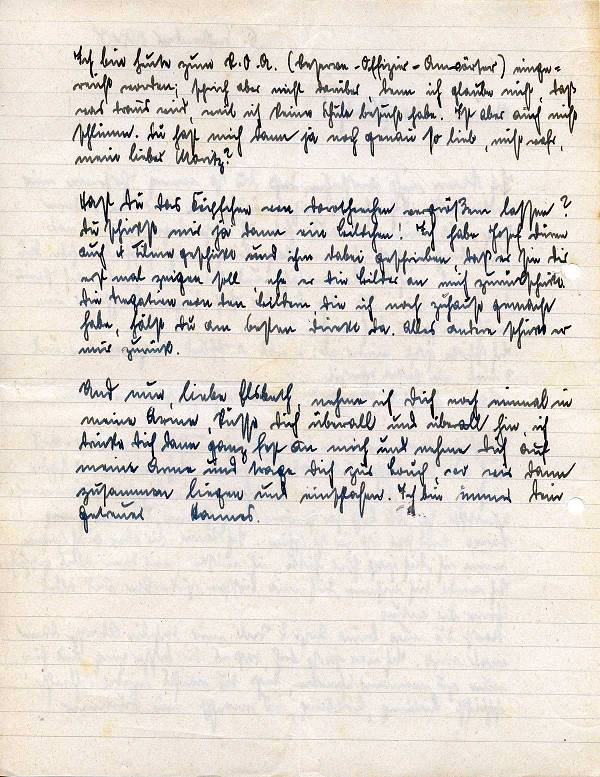 Ich bin heute zum R.O.A. (Reserve-Offizier-Anwärter) einge-
reicht worden; sprich aber nicht darüber, denn ich glaube nicht, daß
was draus wird, weil ich keine Schule besucht habe. Ist aber auch nicht
schlimm. Du hast mich dann ja noch genau so lieb, nicht wahr,
mein lieber Moritz?
Hast Du das Köpfchen von Dorothechen vergrößern lassen?
Du schickst mir ja dann ein Bildchen! Ich habe Josef Düren
auch 2 Filme geschickt und ihm dabei geschrieben, daß er sie Dir
erst mal zeigen soll, ehe er die Bilder an mich zurückschickt.
Die Negative von den Bildern, die ich noch zuhause gemacht
habe, hälst Du am besten direkt da. Alles andere schickt er
mir zurück.
Und nun, liebe Elsbeth, nehme ich Dich noch einmal in
meine Arme, küsse Dich überall und überall hin, ich
drücke Dich dann ganz fest an mich und nehme Dich auf
meine Arme und trage Dich zur Couch, wo wir dann
zusammen liegen und einschlafen. Ich bin immer Dein
getreuer Hannes.